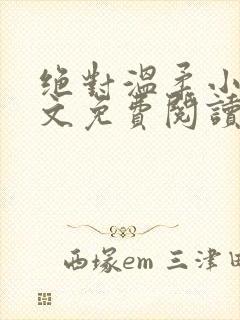 絕對溫柔小
文免費閱讀
西塚em 三津田